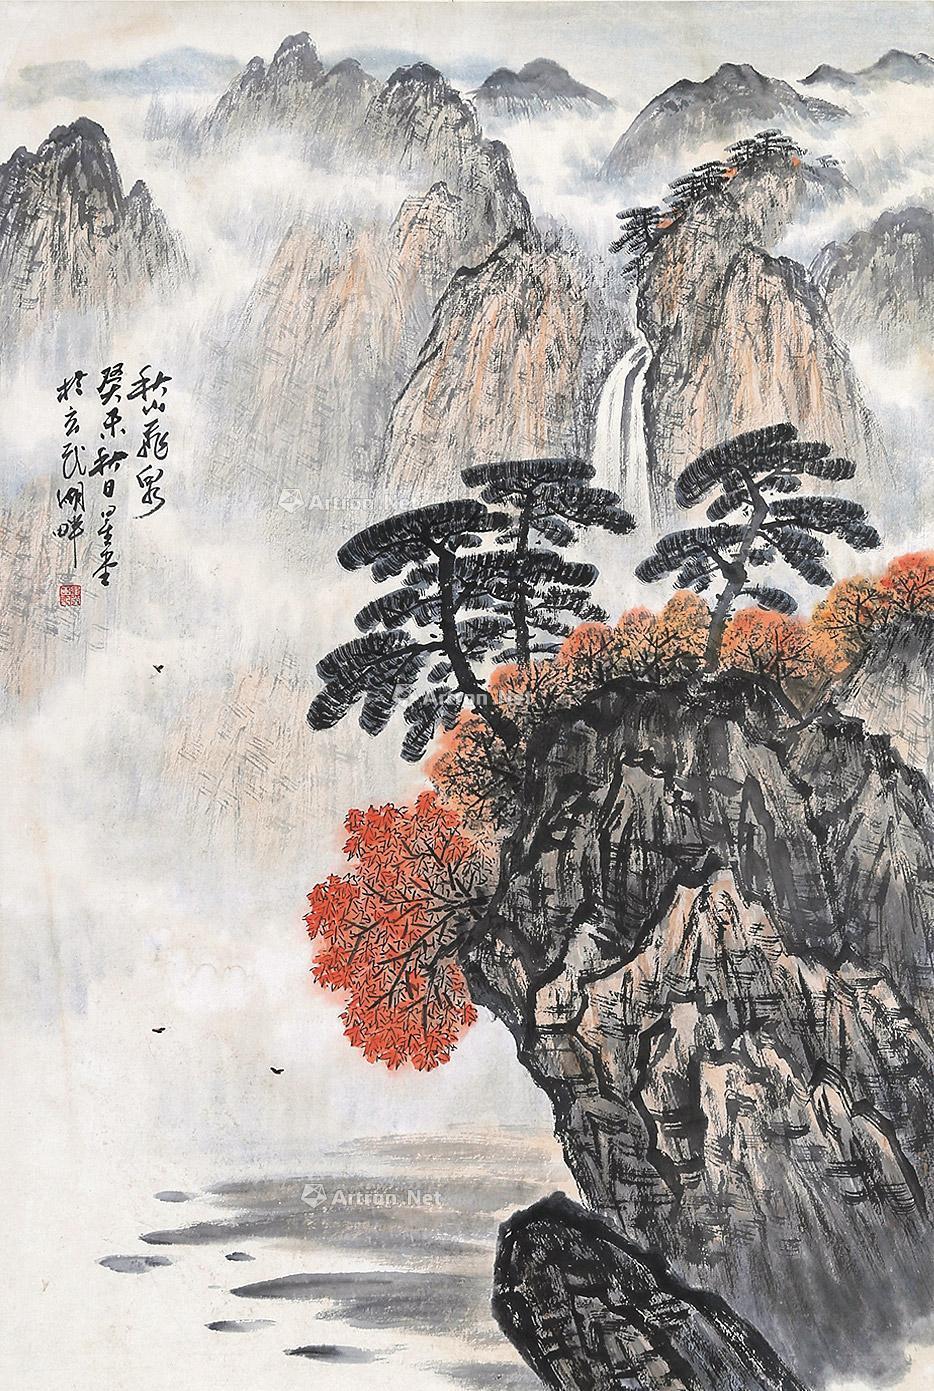 秋山飛泉
癸未秋日星堂
於玄武湖畔
Artron.Net
Artron.Net
Artron.Net